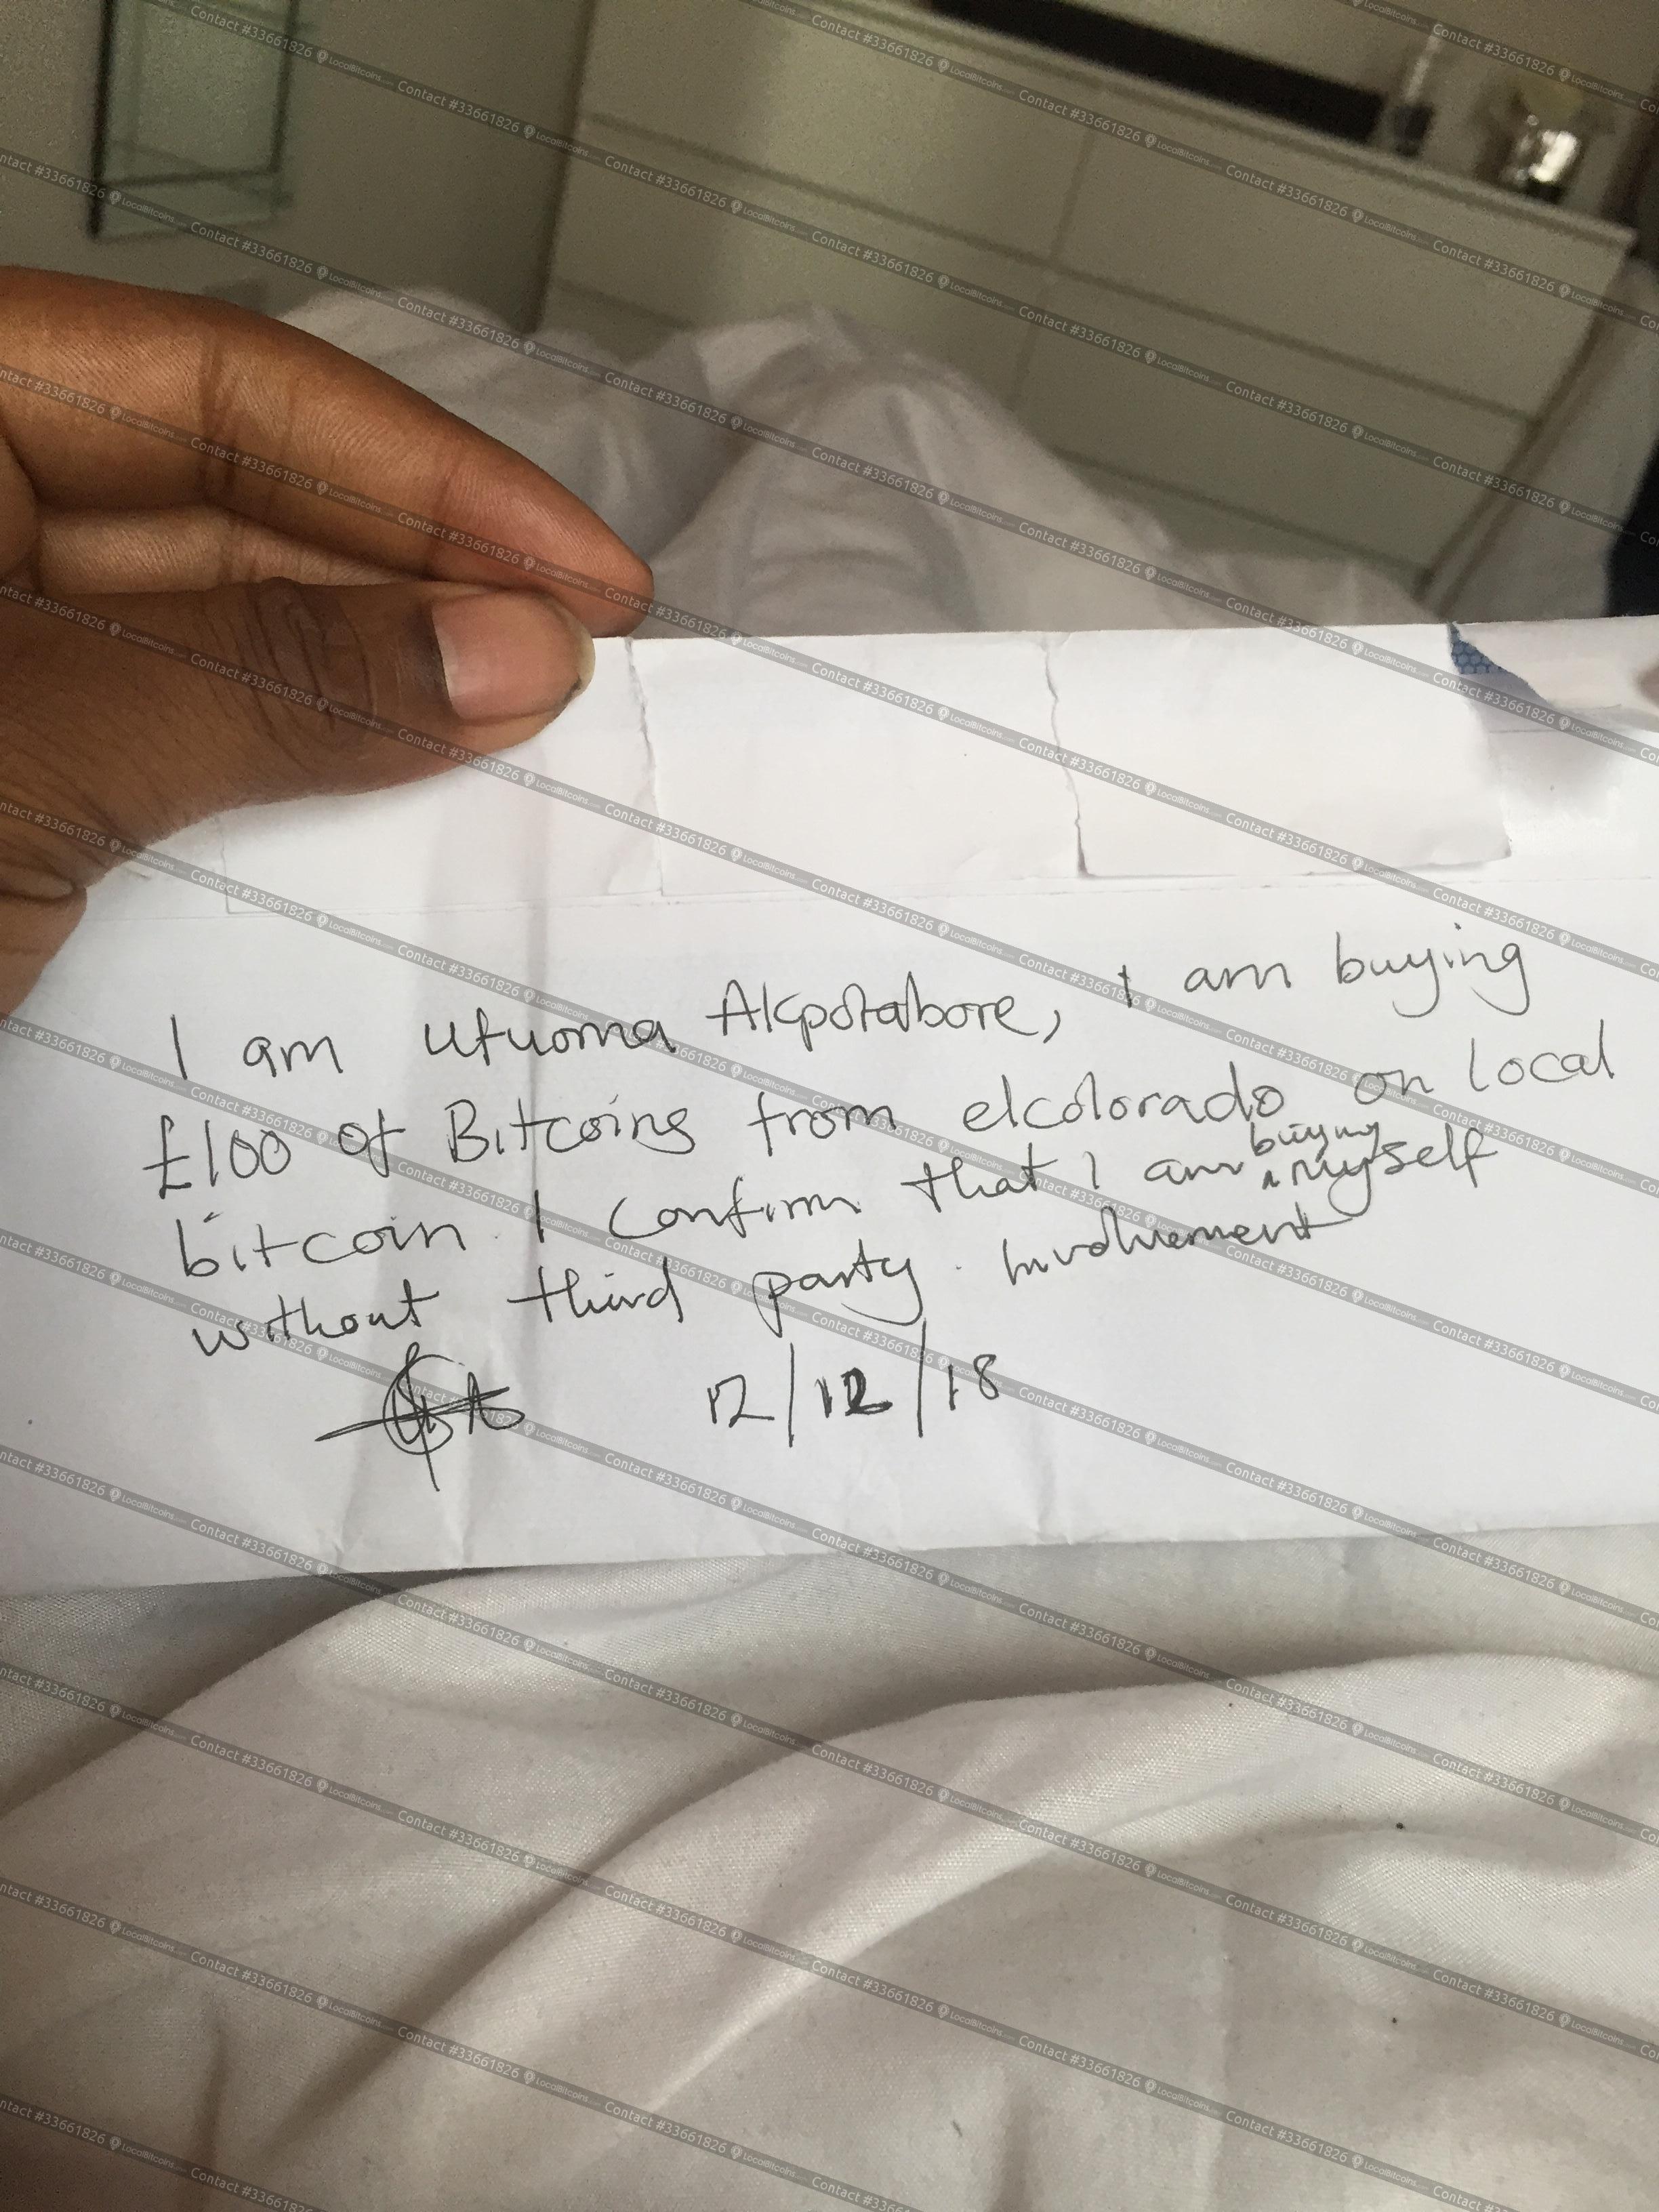 I am Ufuoma Akpotabore, I am buying
£100 of Bitcoins from elcolorado on local
bitcoin. I confirm that I am buying myself
without third party involvement
12/12/18
Contact #33661826 LocalBitcoins.com